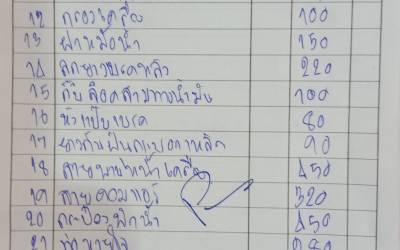 12 กรองเครื่อง 100
13 ฝาหม้อน้ำ 150
14 ลูกยางเบรคหลัง 220
15 กิ๊บล็อคสายทางน้ำมัน 100
16 หัวแป๊บเบรค 80
17 ยางกันฝุ่นกระบอกเหล็ก 90
18 สายพานหน้าเครื่อง 450
19 สายคอมแอร์ 320
20 กระป๋องพักน้ำ 450
21 ท่อหายใจ 280